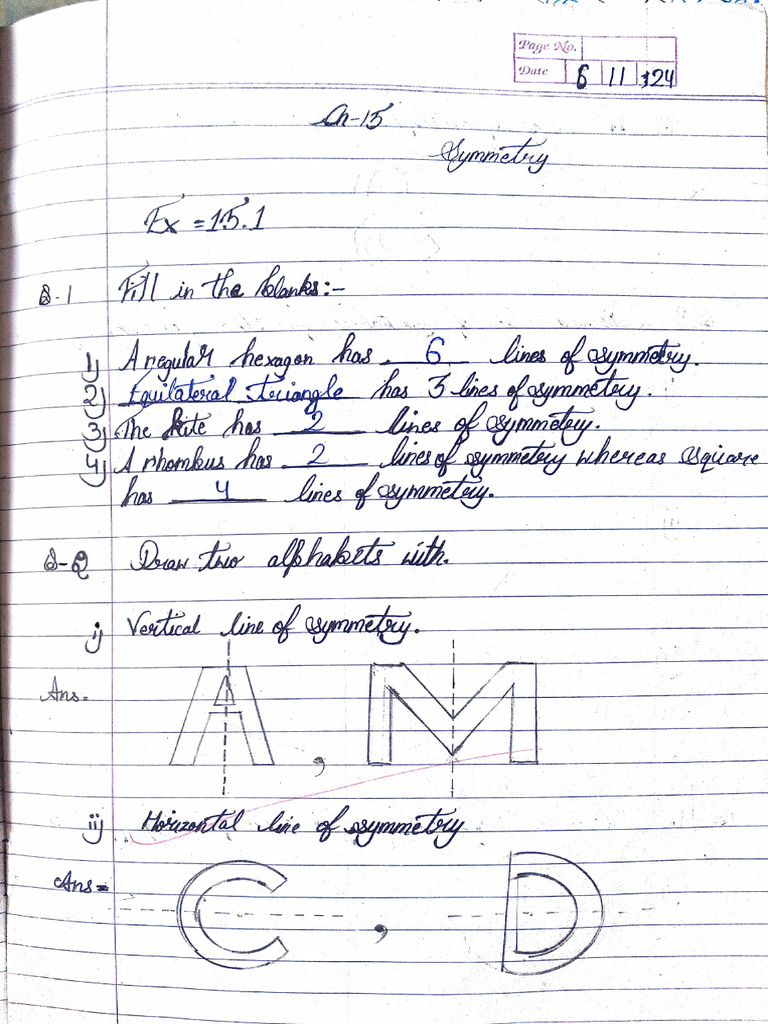 Page No.
Date 6 11 24
Ch-15
Symmetry
Ex = 15.1
Q.1 Fill in the blanks:-
1) A regular hexagon has 6 lines of symmetry.
2) Equilateral triangle has 3 lines of symmetry.
3) The kite has 2 lines of symmetry.
4) A rhombus has 2 lines of symmetry whereas square
has 4 lines of symmetry.
Q-2 Draw two alphabets with.
i) Vertical line of symmetry.
Ans- A , M
ii) Horizontal line of symmetry
Ans= C , D